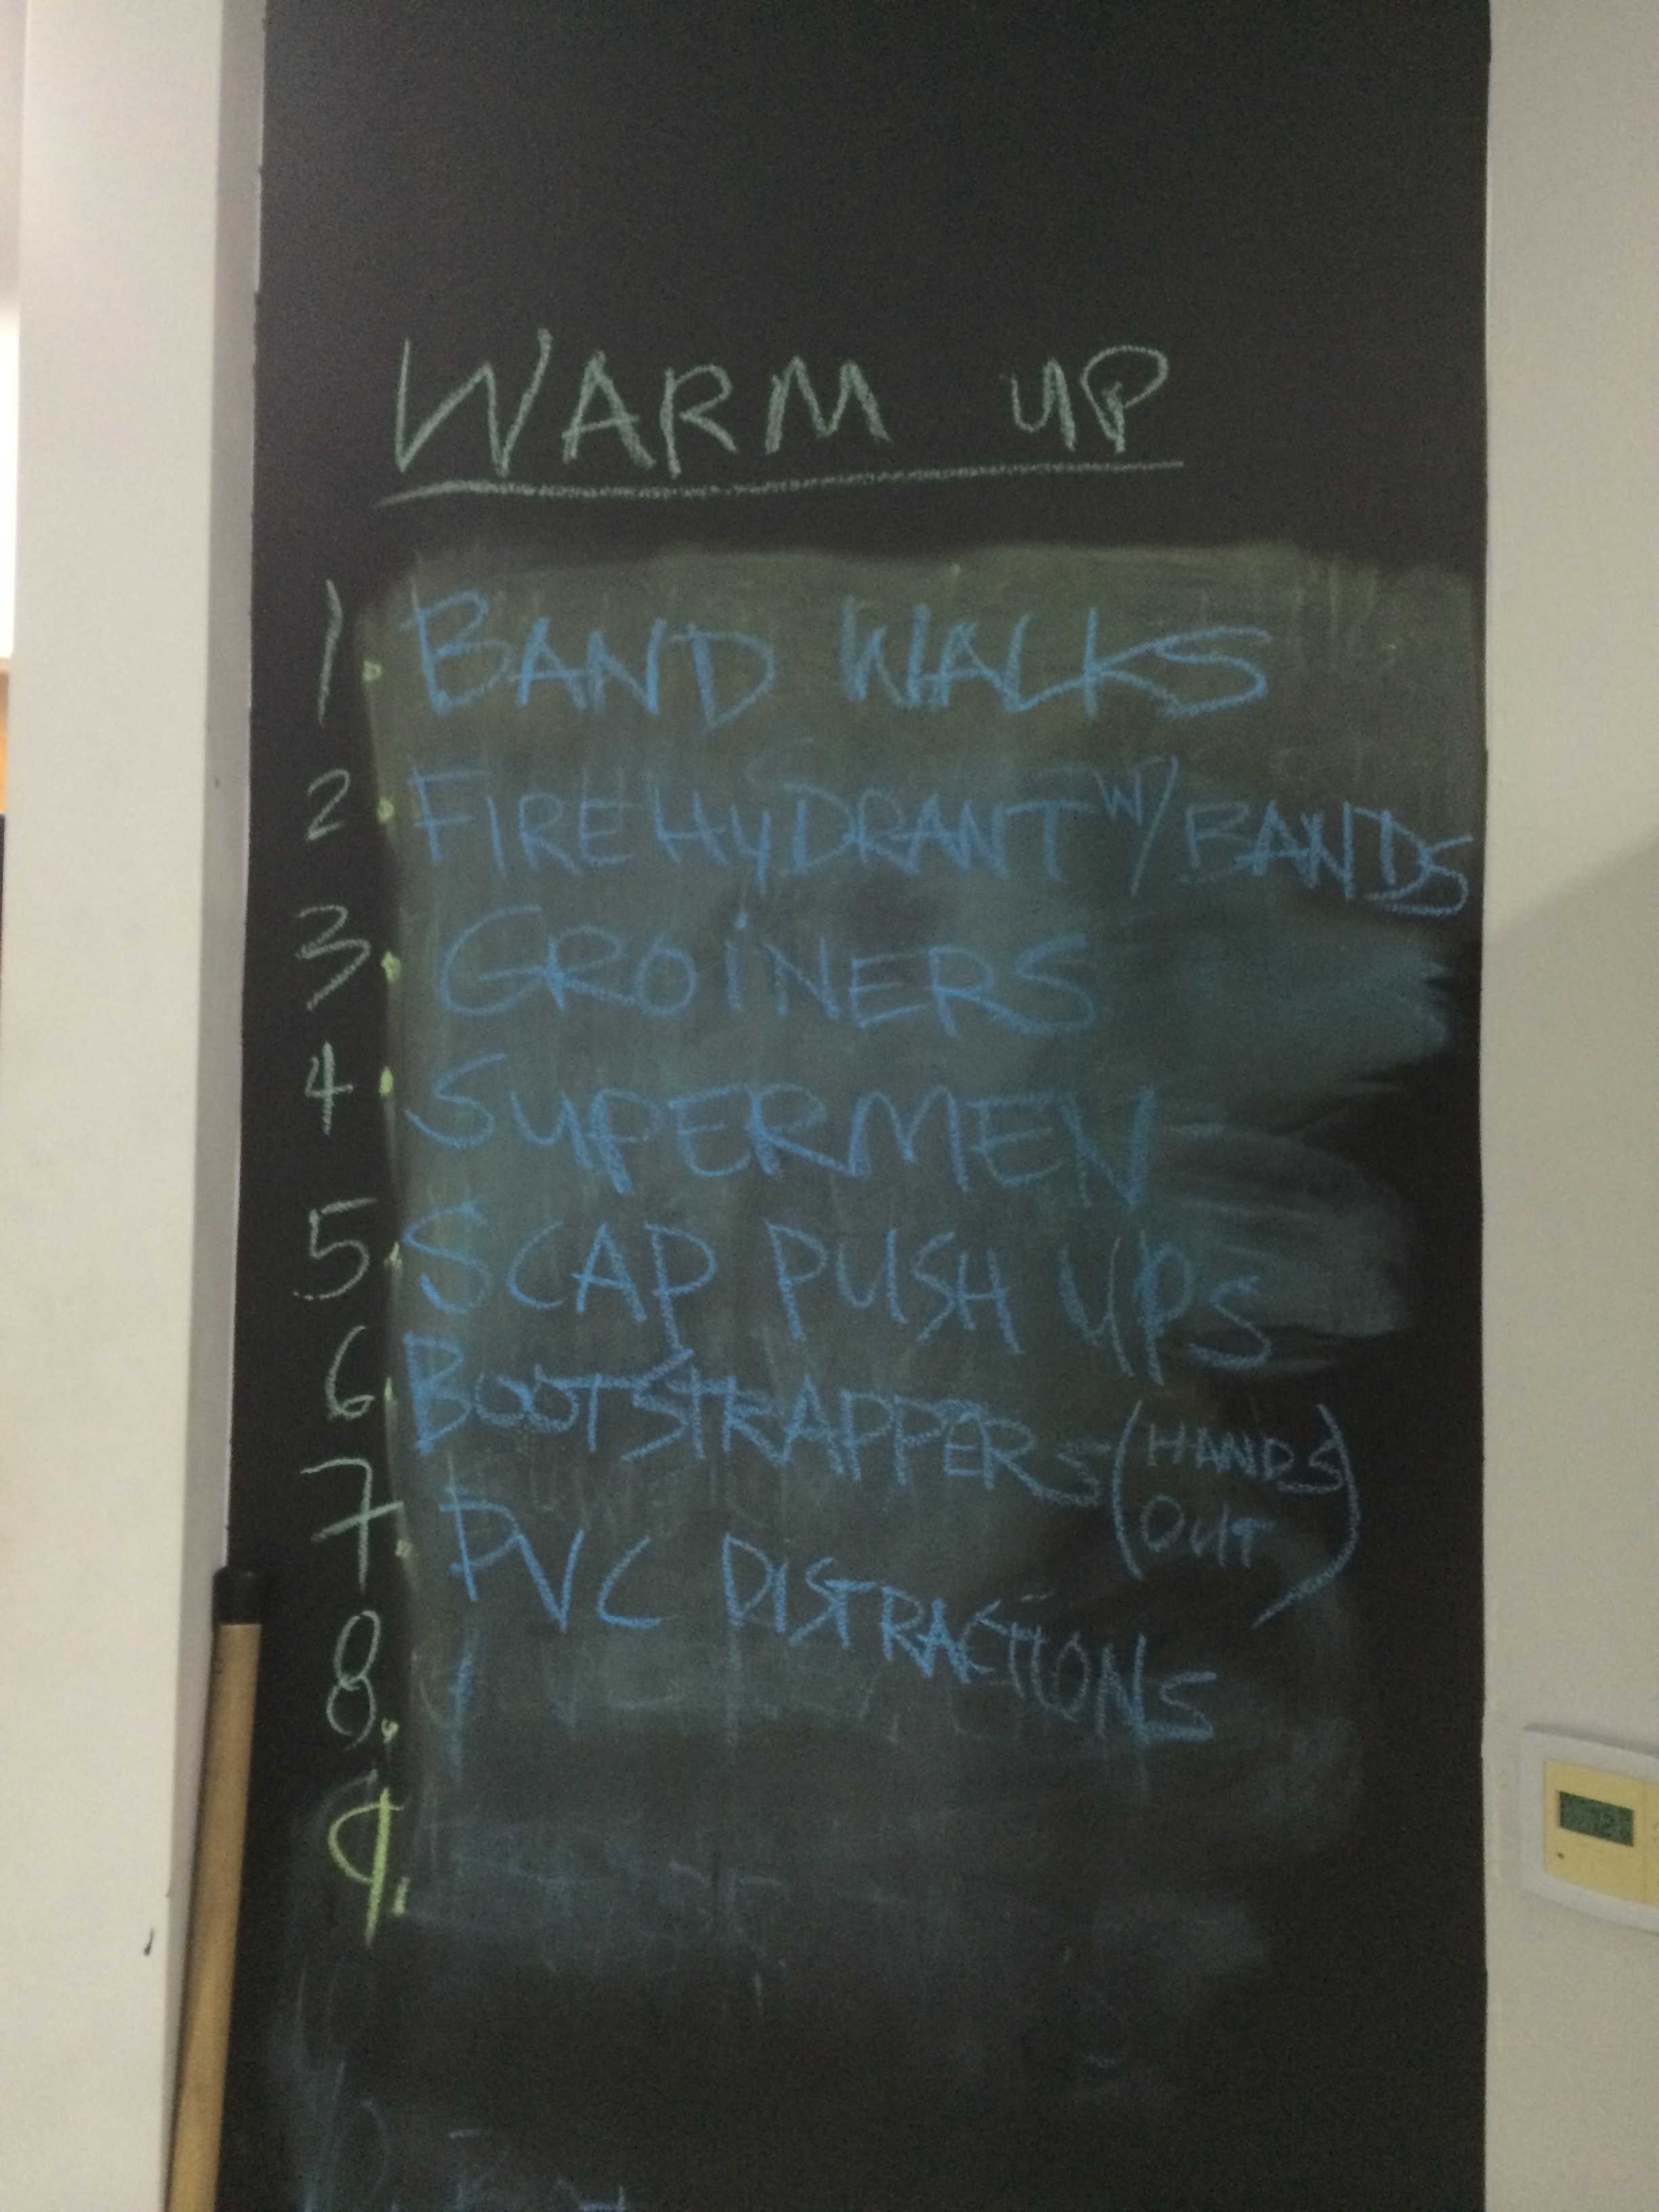 WARM UP
1. BAND WALKS
2. FIREHYDRANT W/ BANDS
3. GROINERS
4. SUPERMEN
5. SCAP PUSH UPS
6. BOOTSTRAPPERS (HANDS
OUT)
7. PVC DISTRACTIONS
8.
9.